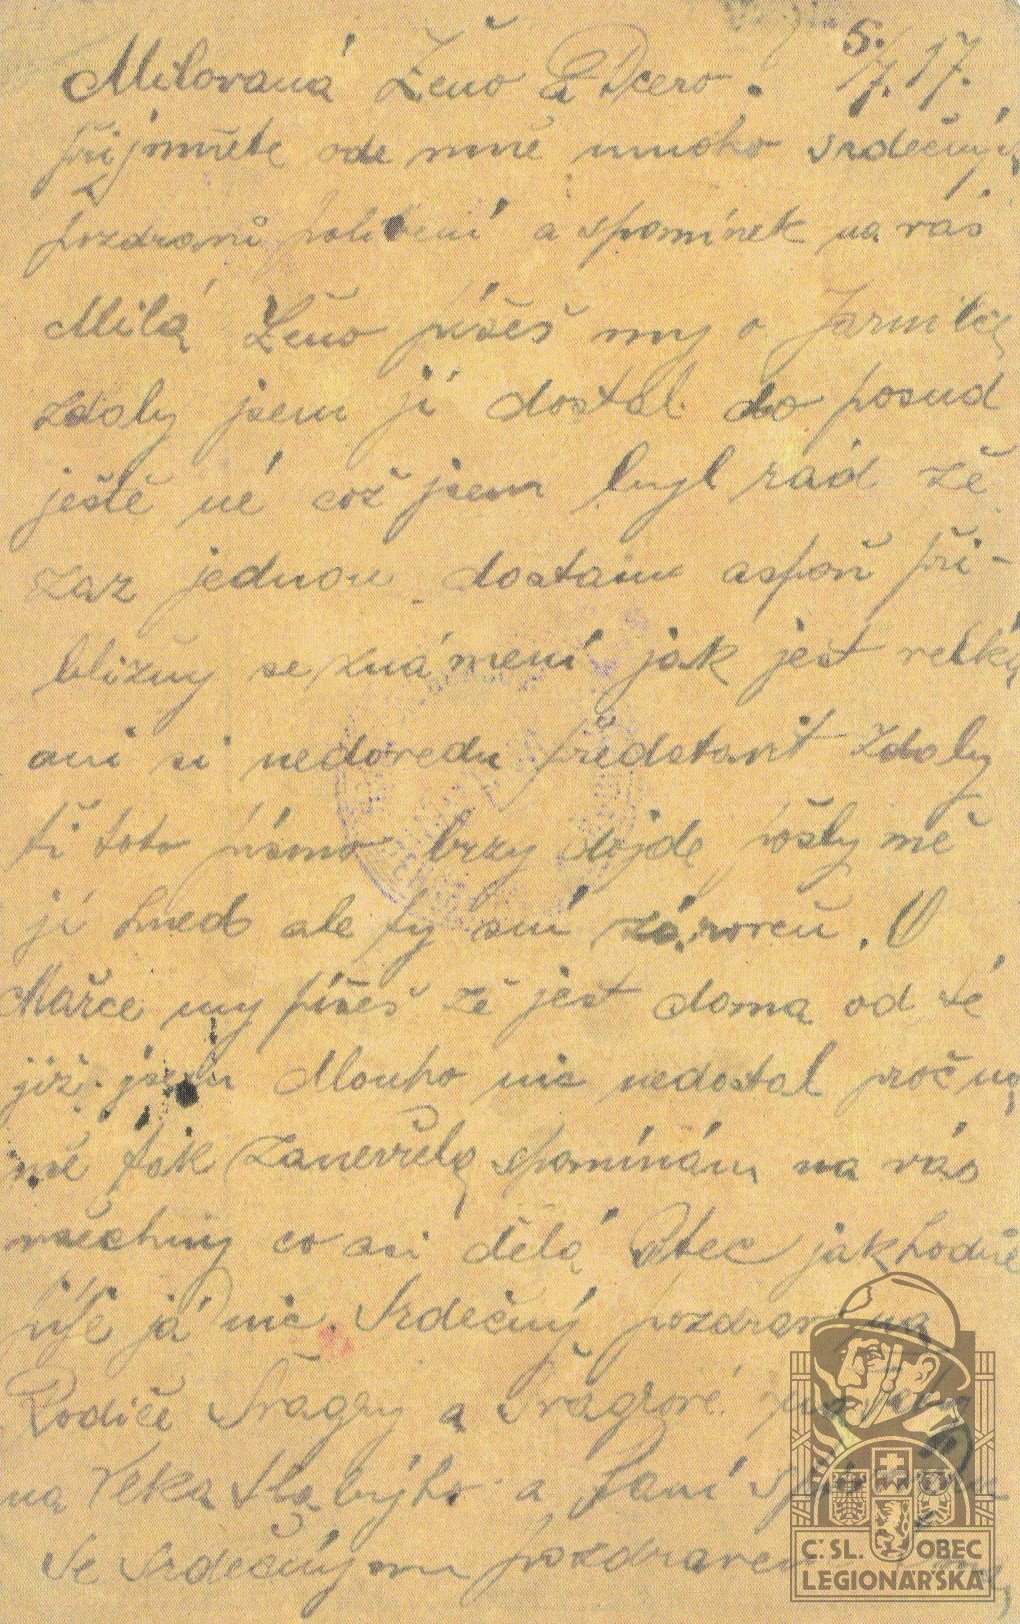 5./7. 17.
Milovaná Ženo a Dcero.
přijmněte ode mně mnoho srdečných
pozdravů políbení a spomínek na vás
Milá Ženo píšeš my o Jarmilce
zdaly jsem jí dostal do posud
ještě né což jsem byl rád že
zaz jednou dostanu aspoň při-
bližny se známení jak jest velká
ani si nedovedu představit zdaly
ti toto písmo brzy dojde pošly mě
jí hned ale ty sní zároveň. O
Mařce my píšeš že jest doma od té
již jsem dlouho nic nedostal proč na
mě tak zanevřela spomínám na vás
všechny co asi dělá Otec jak hodně
píše já nic. Srdečný pozdrav na
Rodiče Švagry a Švagrové
na Slabýho a Paní
Se Srdečným pozdravem
Č. SL. OBEC
LEGIONÁŘSKÁ